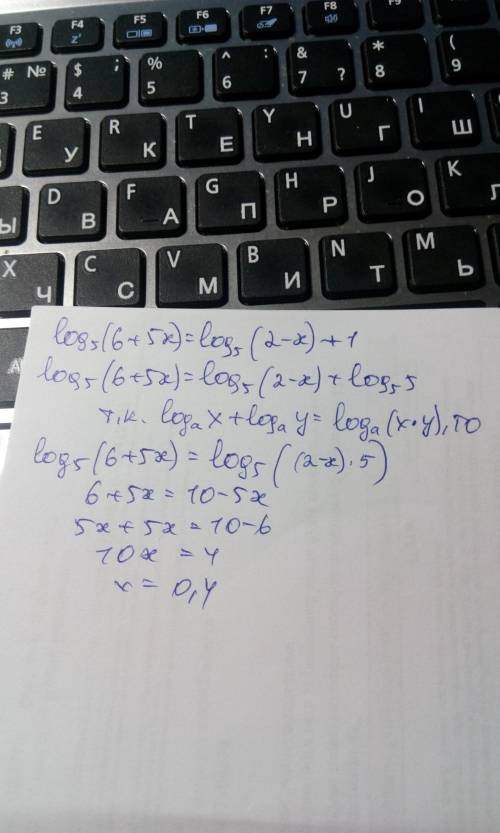 F3 F4 F5 F6 F7 F8 F9
z²
# № 3 $ ; 4 % 5 ^ : 6 & 7 ? * 8 ( 9
E У R К T Е Y Н U Г I Ш
Ы D В F А G П H Р J О K Л
X Ч C С V М B И N Т M Ь
log₅(6+5x)=log₅(2-x)+1
log₅(6+5x)=log₅(2-x)+log₅5
т.к. logₐx+logₐy=logₐ(x·y), то
log₅(6+5x)=log₅((2-x)·5)
6+5x=10-5x
5x+5x=10-6
10x=4
x=0,4